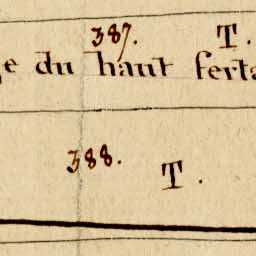 387. T.
e du haut ferta
388. T.